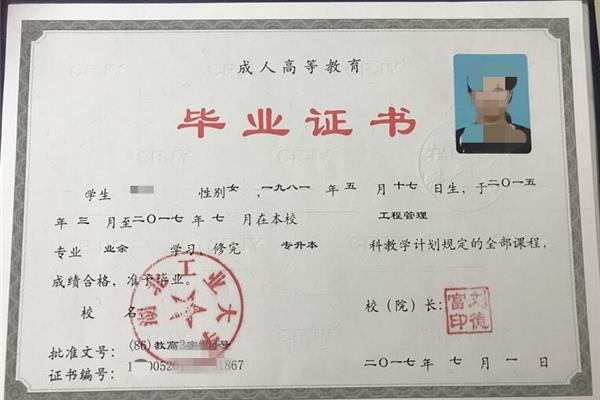 成人高等教育
毕业证书
学生 性别女，一九八一年五月十七日生，于二〇一五
年三月至二〇一七年七月在本校 工程管理
专业 业余 学习，修完 专升本 科教学计划规定的全部课程，
成绩合格，准予毕业。
校 名： 湖北工业大学 校（院）长： 刘德富印
批准文号：(86)教高3字 号
证书编号：1 0052 1867 二〇一七年七月一日